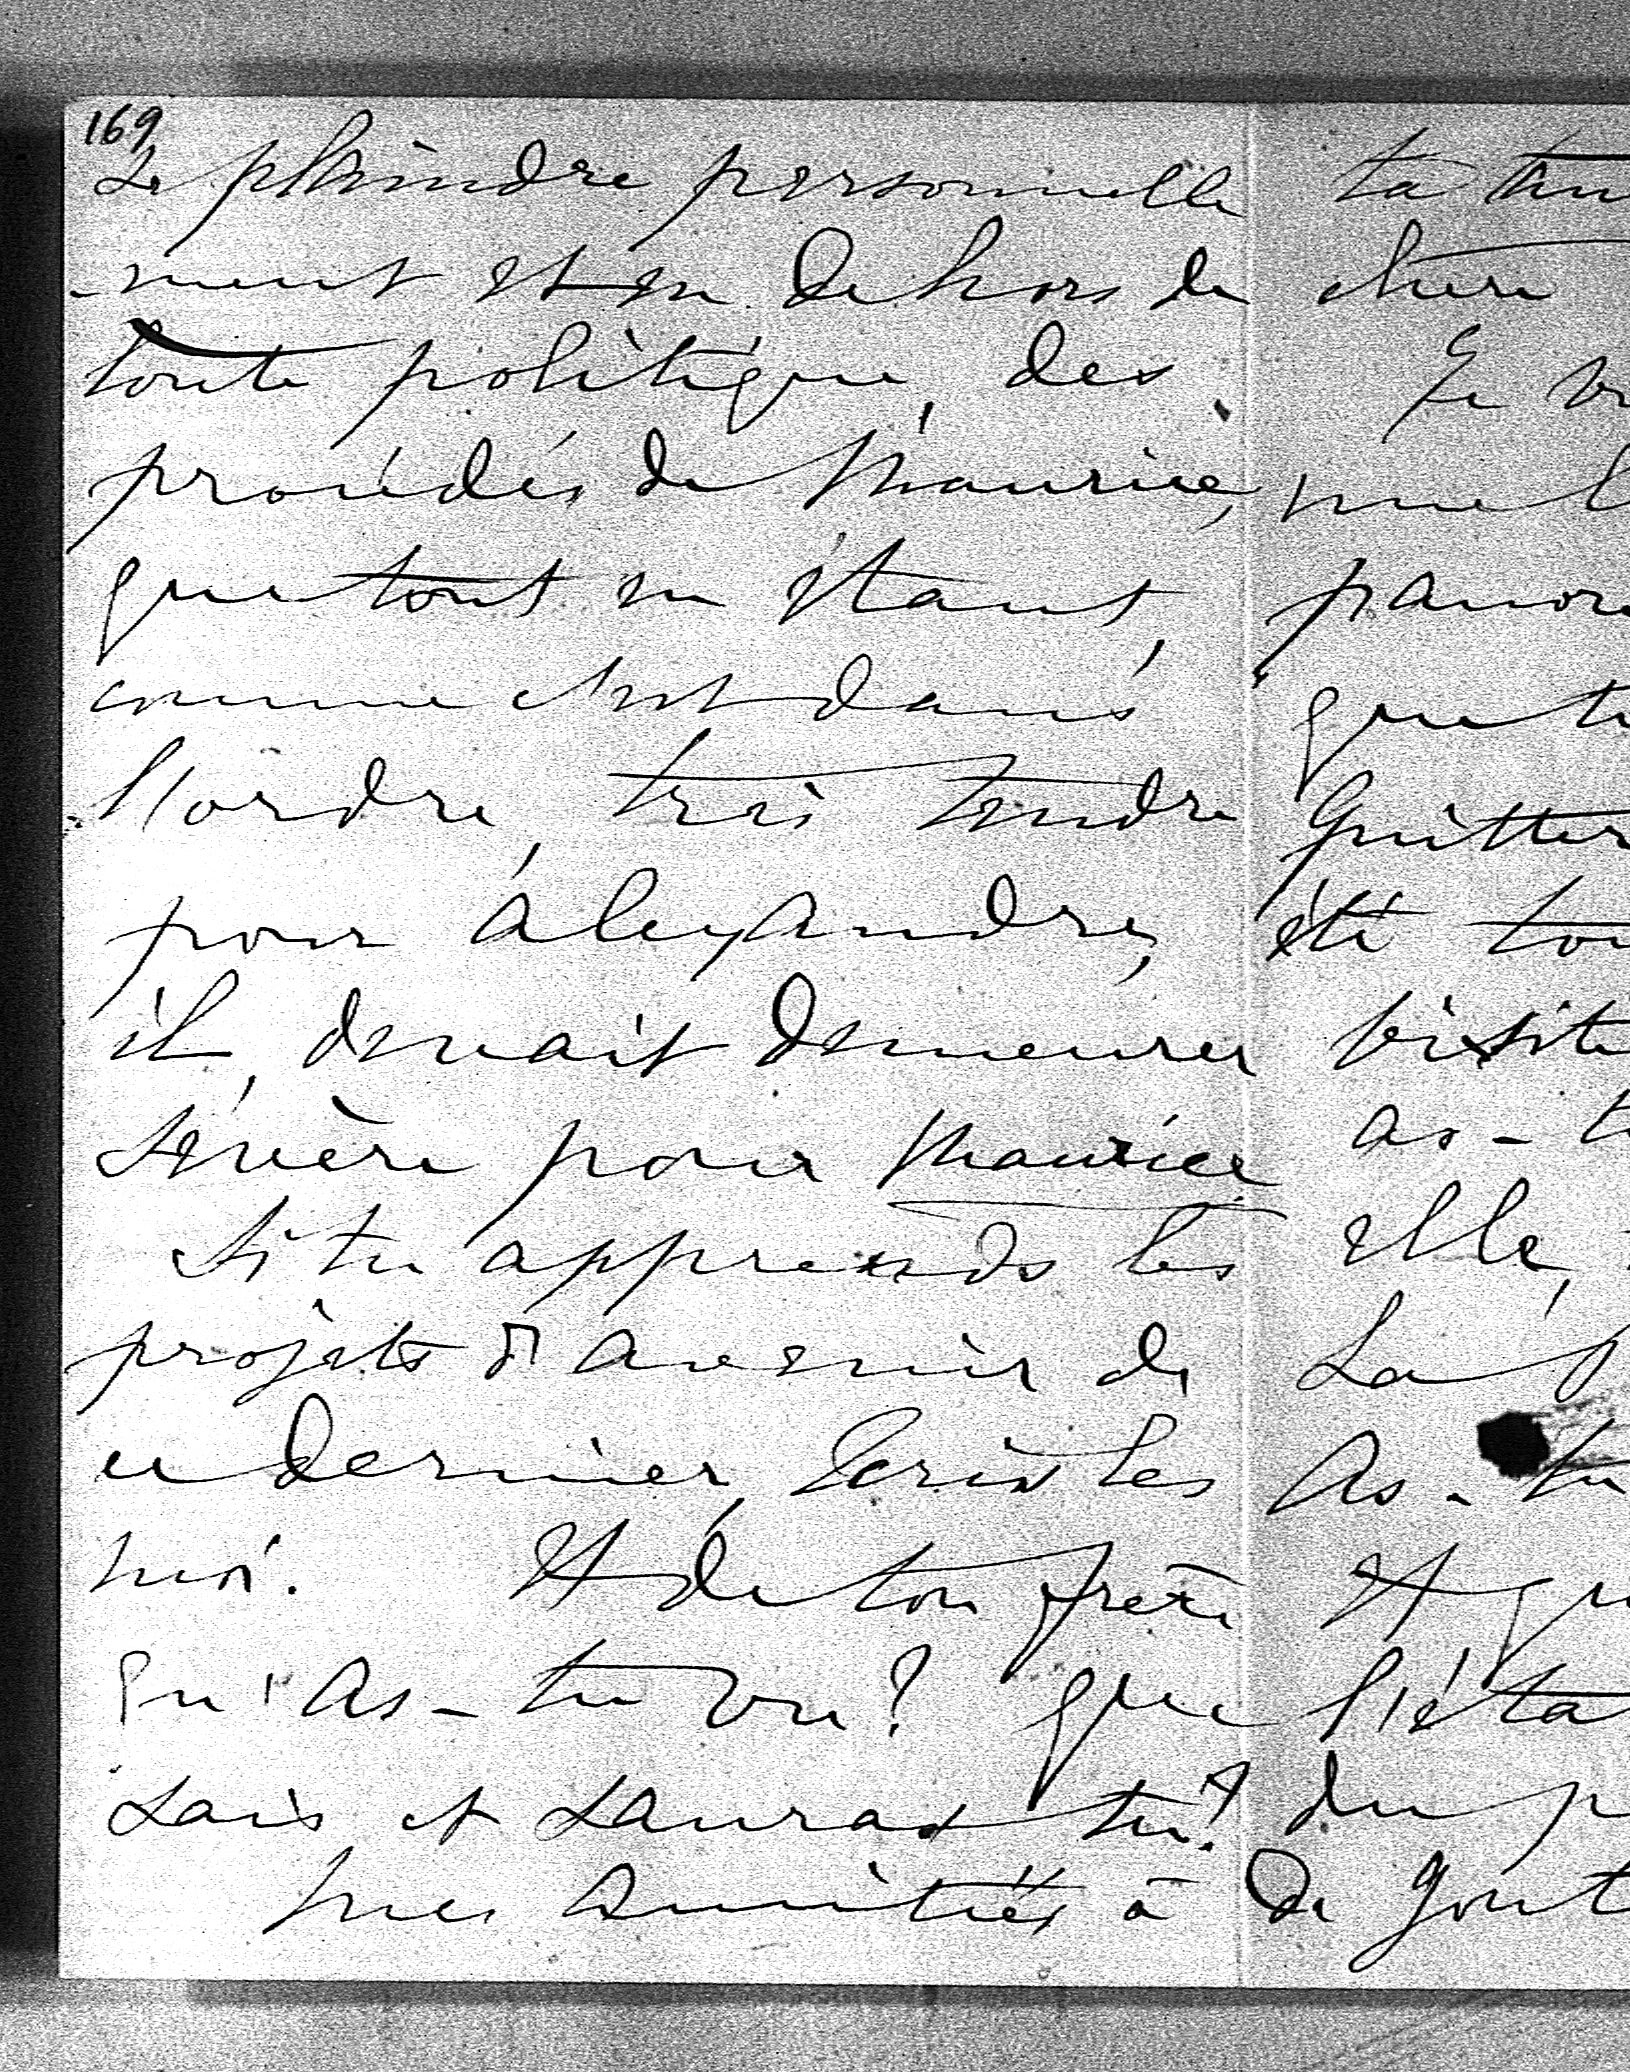 169
se plaindre personnelle
-ment et en dehors de
toute politique, des
procédés de Maurice,
que tout en étant,
comme c'est dans
l'ordre, très tendre
pour Alexandre,
il devait demeurer
sévère pour Maurice
Si tu apprends les
projets d'avenir de
ce dernier, écris les
moi. Et de ton frère
qu'as-tu vu? que
sais et sauras tu?
Mes amitiés à
ta
chère
Je
me
que
quitter
été
visite
as-t
elle,
La
As-tu
Et
l'éta
du
de